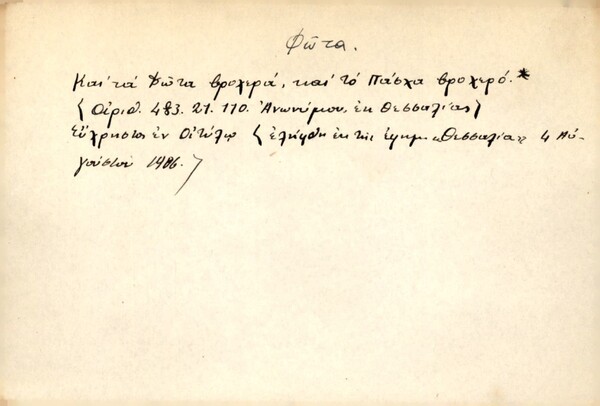 Φῶτα.
Καὶ τὰ Φῶτα βροχερά, καὶ τὸ Πάσχα βροχερό.*
(Ἀριθ. 483. 21. 110. Ἀνωνύμου, ἐκ Θεσσαλίας)
Εὔχρηστος ἐν Οἰτύλῳ (ἐλήφθη ἐκ τῆς ἐφημ. «Θεσσαλία» 4 Αὐ-
γούστου 1906.)